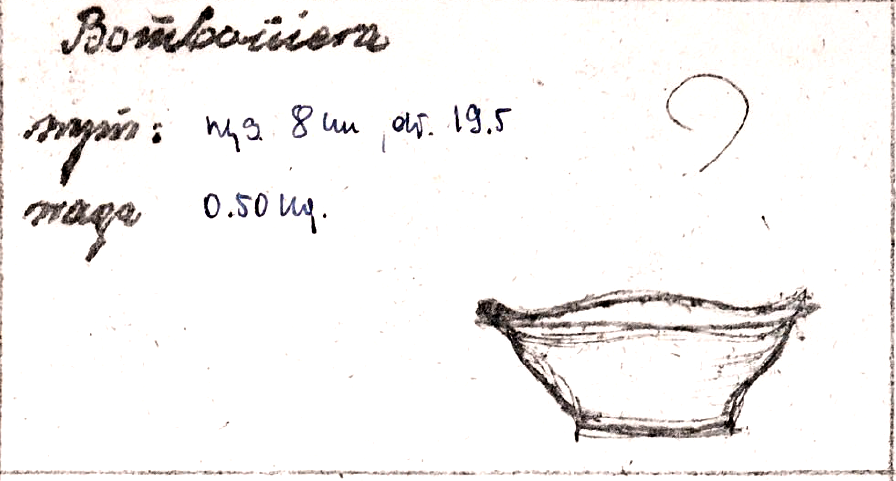 Bomboniera
wym: wys. 8 cm, dł. 19.5
waga 0.50 kg.